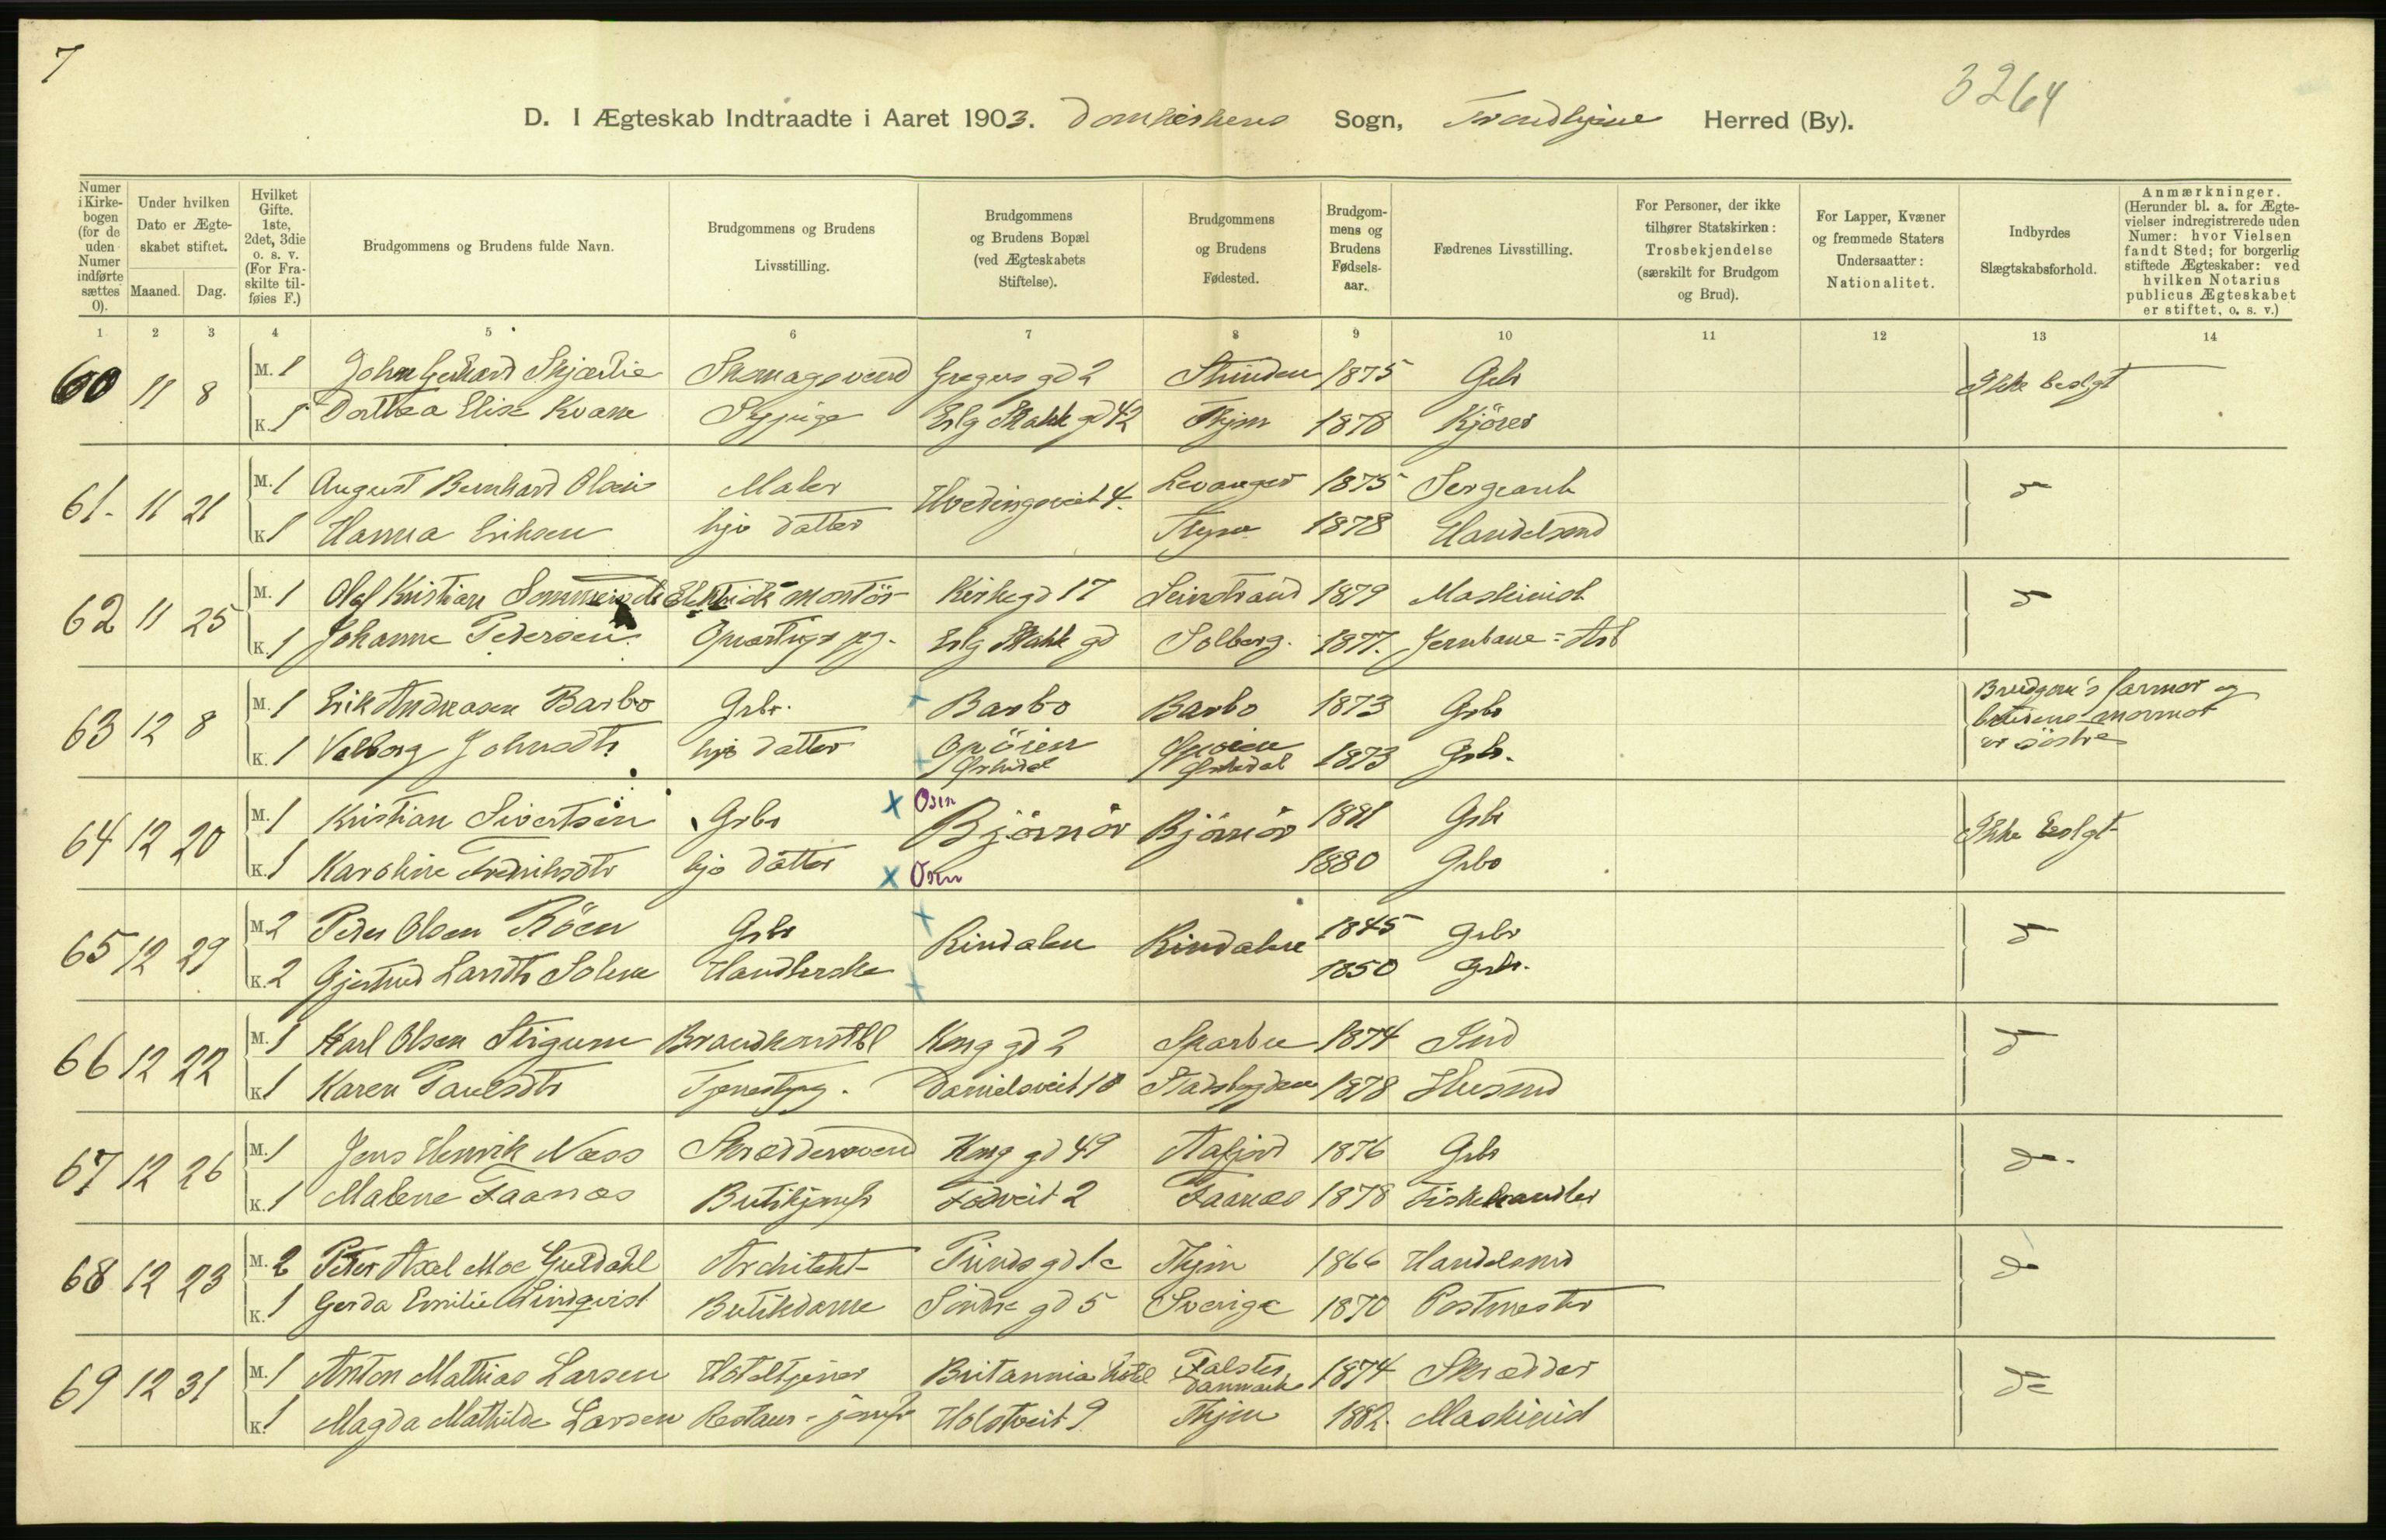 7
3264
D. I Ægteskab Indtraadte i Aaret 1903. Domkirkens Sogn, Trondhjem Herred (By).
Numer i Kirkebogen (for de uden Numer indførte sættes 0).
Under hvilken Dato er Ægteskabet stiftet.
Maaned. Dag.
Hvilket Gifte. 1ste, 2det, 3die o. s. v. (For Fraskilte tilføies F.)
Brudgommens og Brudens fulde Navn.
Brudgommens og Brudens Livsstilling.
Brudgommens og Brudens Bopæl (ved Ægteskabets Stiftelse).
Brudgommens og Brudens Fødested.
Brudgommens og Brudens Fødselsaar.
Fædrenes Livsstilling.
For Personer, der ikke tilhører Statskirken: Trosbekjendelse (særskilt for Brudgom og Brud).
For Lapper, Kvæner og fremmede Staters Undersaatter: Nationalitet.
Indbyrdes Slægtskabsforhold.
Anmærkninger. (Herunder bl. a. for Ægtevielser indregistrerede uden Numer: hvor Vielsen fandt Sted; for borgerlig stiftede Ægteskaber: ved hvilken Notarius publicus Ægteskabet er stiftet, o. s. v.)
1 2 3 4 5 6 7 8 9 10 11 12 13 14
60 11 8 M. 1 John Gerhard Skjærlie Skomagersvend Gregus gd 2 Strinden 1875 Gbr Ikke beslgt
K. 1 Dorthea Elise Kvam Sypige Erlg Skakk gd 42 Thjm 1878 Kjører
61 11 21 M. 1 August Bernhard Olsen Maler Hvedingsveit 4. Levanger 1875 Sergeant d
K 1 Hanna Eriksen hjs datter Thjm 1878 Handelsmd
62 11 25 M. 1 Olaf Kristian Elektrisk montör Kirkegd 17 Leinstrand 1879 Maskinist d
K. 1 Johanne Pedersen Opvartngs pg. Erlg Skakk gd Solberg. 1877. Jernbane=Arb
63 12 8 M. 1 Erik Andreasen Barbo Gbr. Barbo Barbo 1873 Gbr Brudgom's farmor og brudens mormor er søstre
K. 1 Valborg Johnsdtr hjs datter 1873 Gbr.
64 12 20 M. 1 Kristian Sivertsen Gbr x Osen Björnör Björnör 1881 Gbr Ikke beslgt
K. 1 Karoline Fredriksdtr hjs datter x Osen 1880 Gbr
65 12 29 M 2 Peder Olsen Röen Gbr Rindalen Rindalen 1845 Gbr d
K. 2 Gjertrud Larsdtr Solem Handlerske 1850 Gbr.
66 12 22 M. 1 Karl Olsen Stigum Brandkonstbl Kong gd 2 Sparbu 1874 Ind d
K 1 Karen Paulsdtr Tjenestpg. Danielsveit 10 Stadsbygden 1878 Husmd
67 12 26 M. 1 Jens Henrik Næss Skræddersvend Kong gd 49 Aafjord 1876 Gbr do.
K. 1 Malene Faanæs Butikjomfr Fodveit 2 Faanæs 1878 Fiskehandler
68 12 23 M. 2 Peter Axel Moe Guldahl Architekt Prinds gd 1c Thjm 1866 Handelsmd do
K. 1 Gerda Emilie Lindqvist Butikdame Söndre gd 5 Sverige 1870 Postmester
69 12 31 M. 1 Anton Mathias Larsen Hoteltjener Britannia Hotel Falster Danmark 1874 Skrædder do
K. 1 Magda Mathilde Larsen Restaur=jomfr Holstveit 9 Thjm 1882. Maskinist